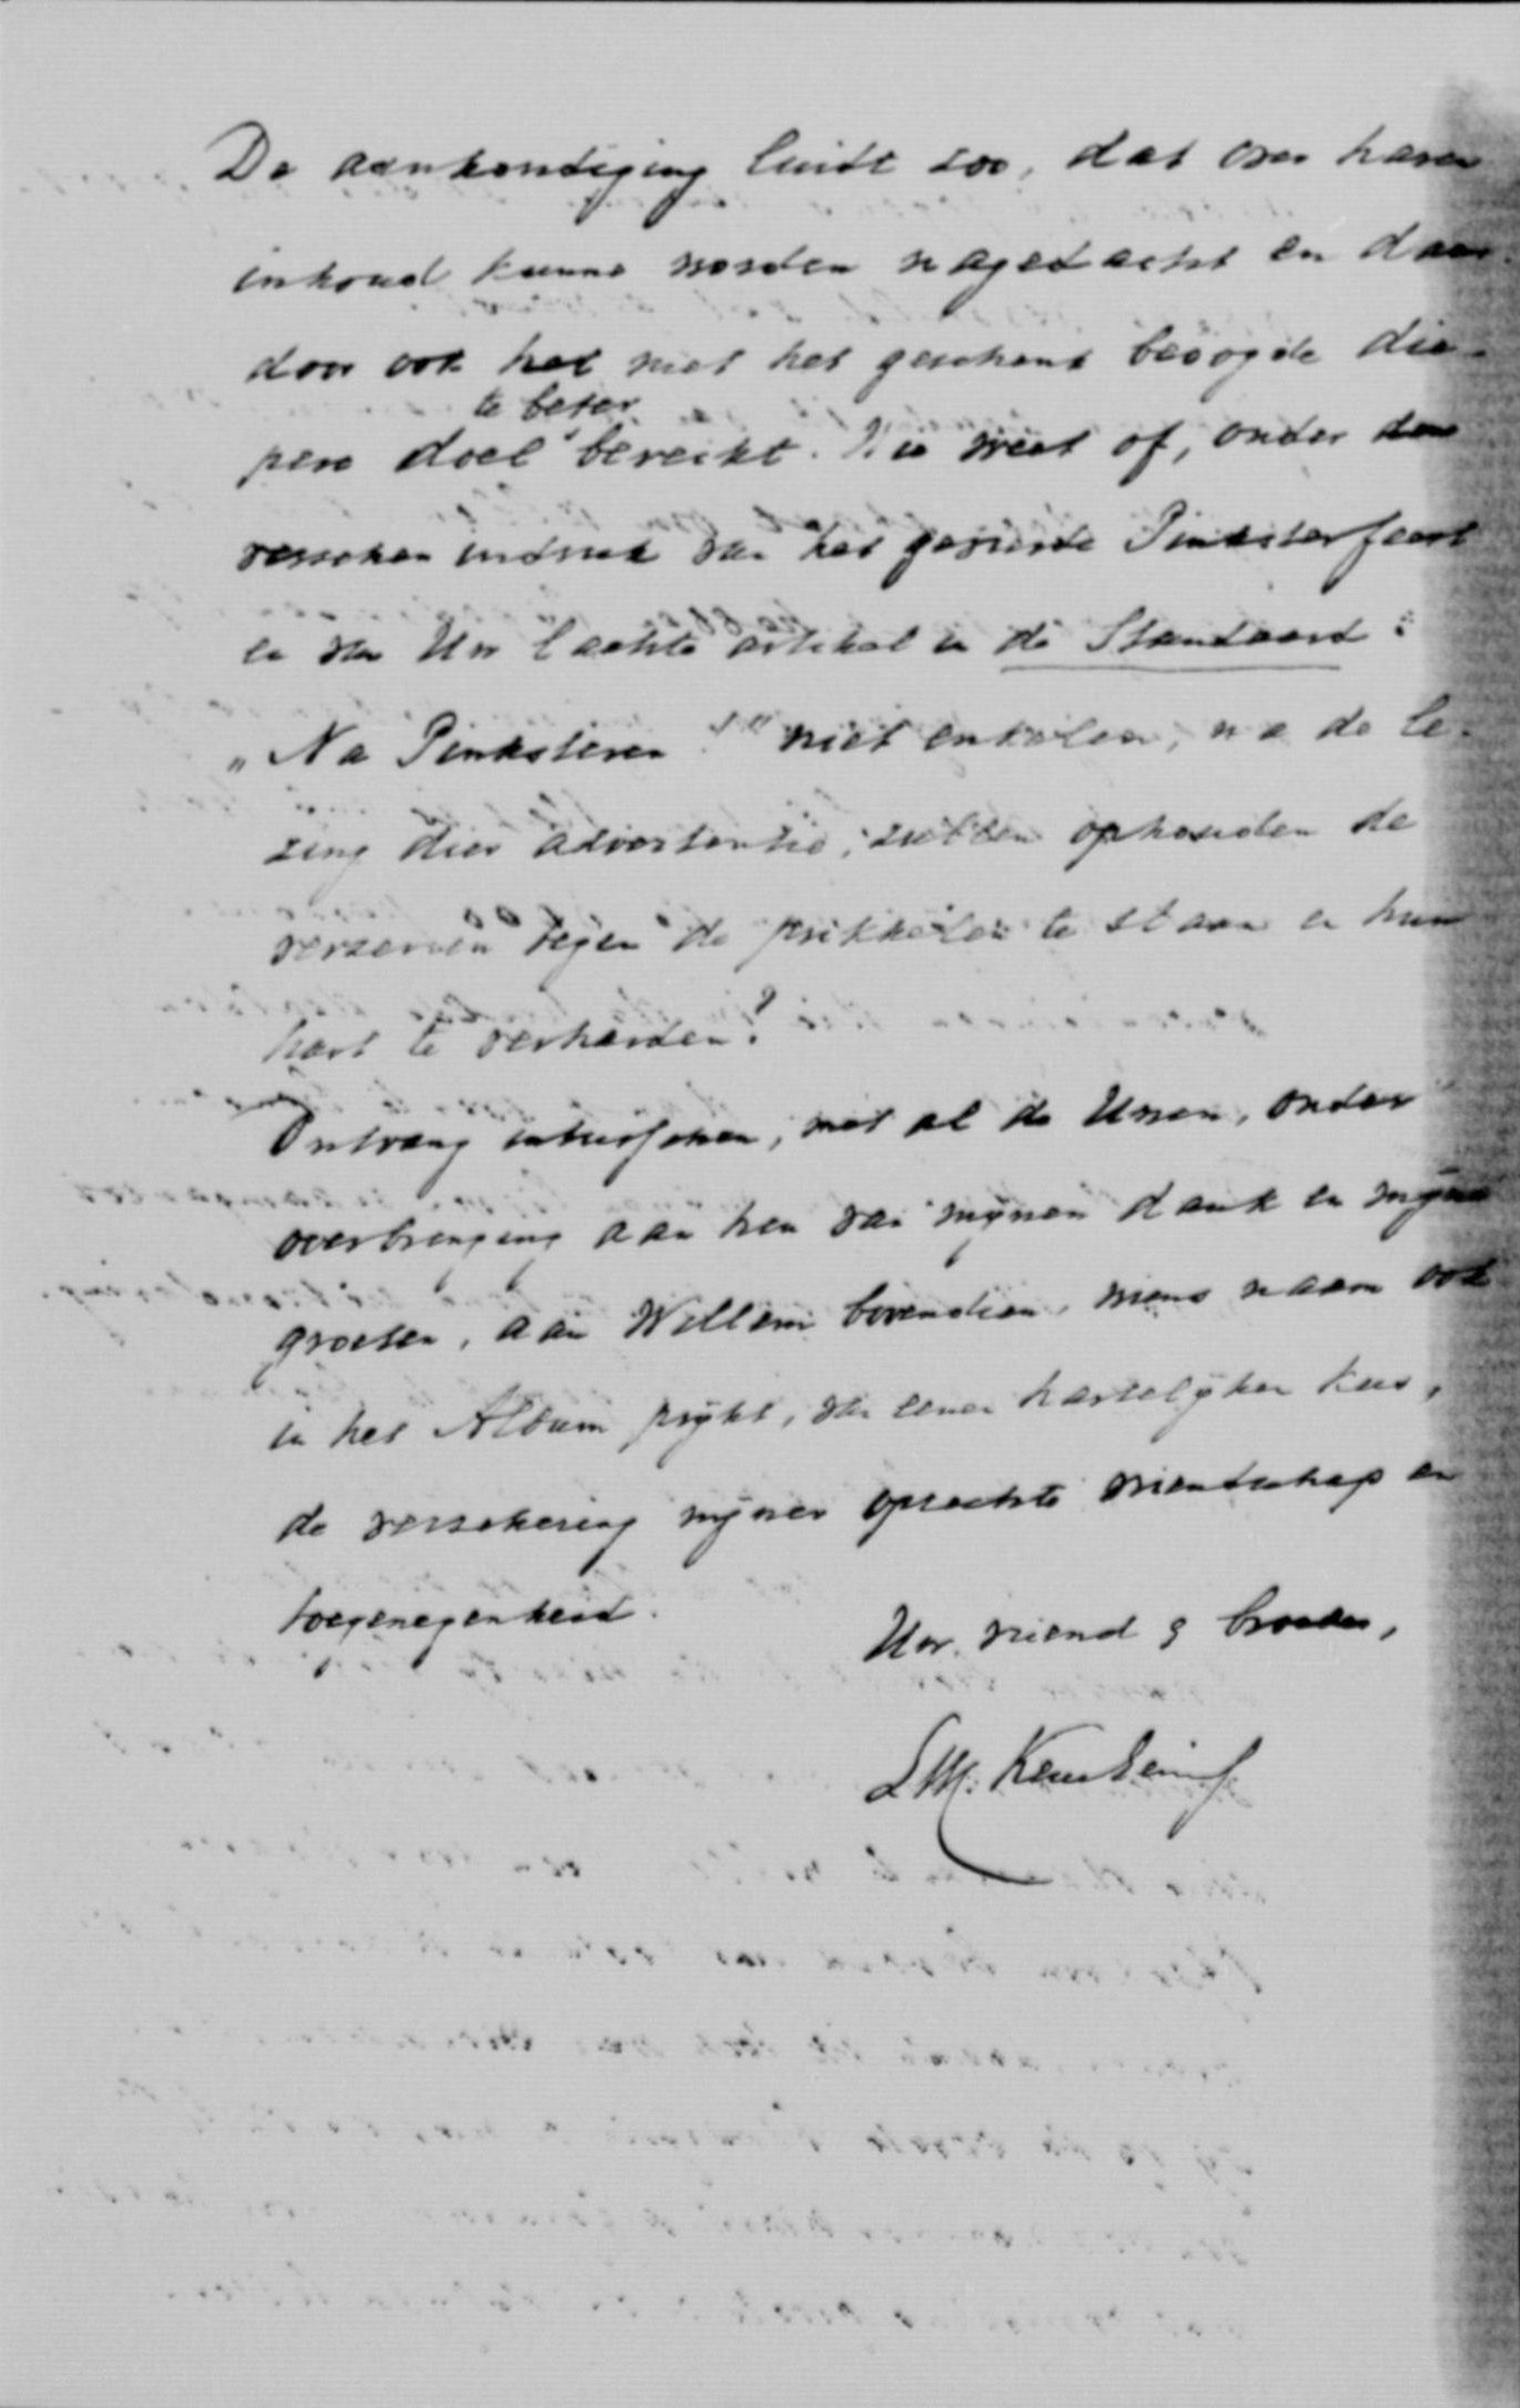 De aankondiging luidt zoo, dat over haren
inhoud kunne worden nagedacht en daar-
door ook het met het geschenk beoogde die-
te beter
pere doel bereikt. Wie weet of, onder den
verschen indruk van het gevierde Pinksterfeest
en van Uw laatste artikel in de Standaard:
„Na Pinksteren!" niet enkelen, na de le-
zing dier advertentie, zullen ophouden de
verzenen tegen de prikkelen te slaan en hun
hart te verharden?
Ontvang intusschen, met al de Uwen, onder
overbrenging aan hen van mijnen dank en mijne
groeten, aan Willem bovendien, wiens naam ook
in het Album prijkt, van eenen hartelijken kus,
de verzekering mijner oprechte vriendschap en
toegenegenheid.
Uw vriend & broeder,
LM.